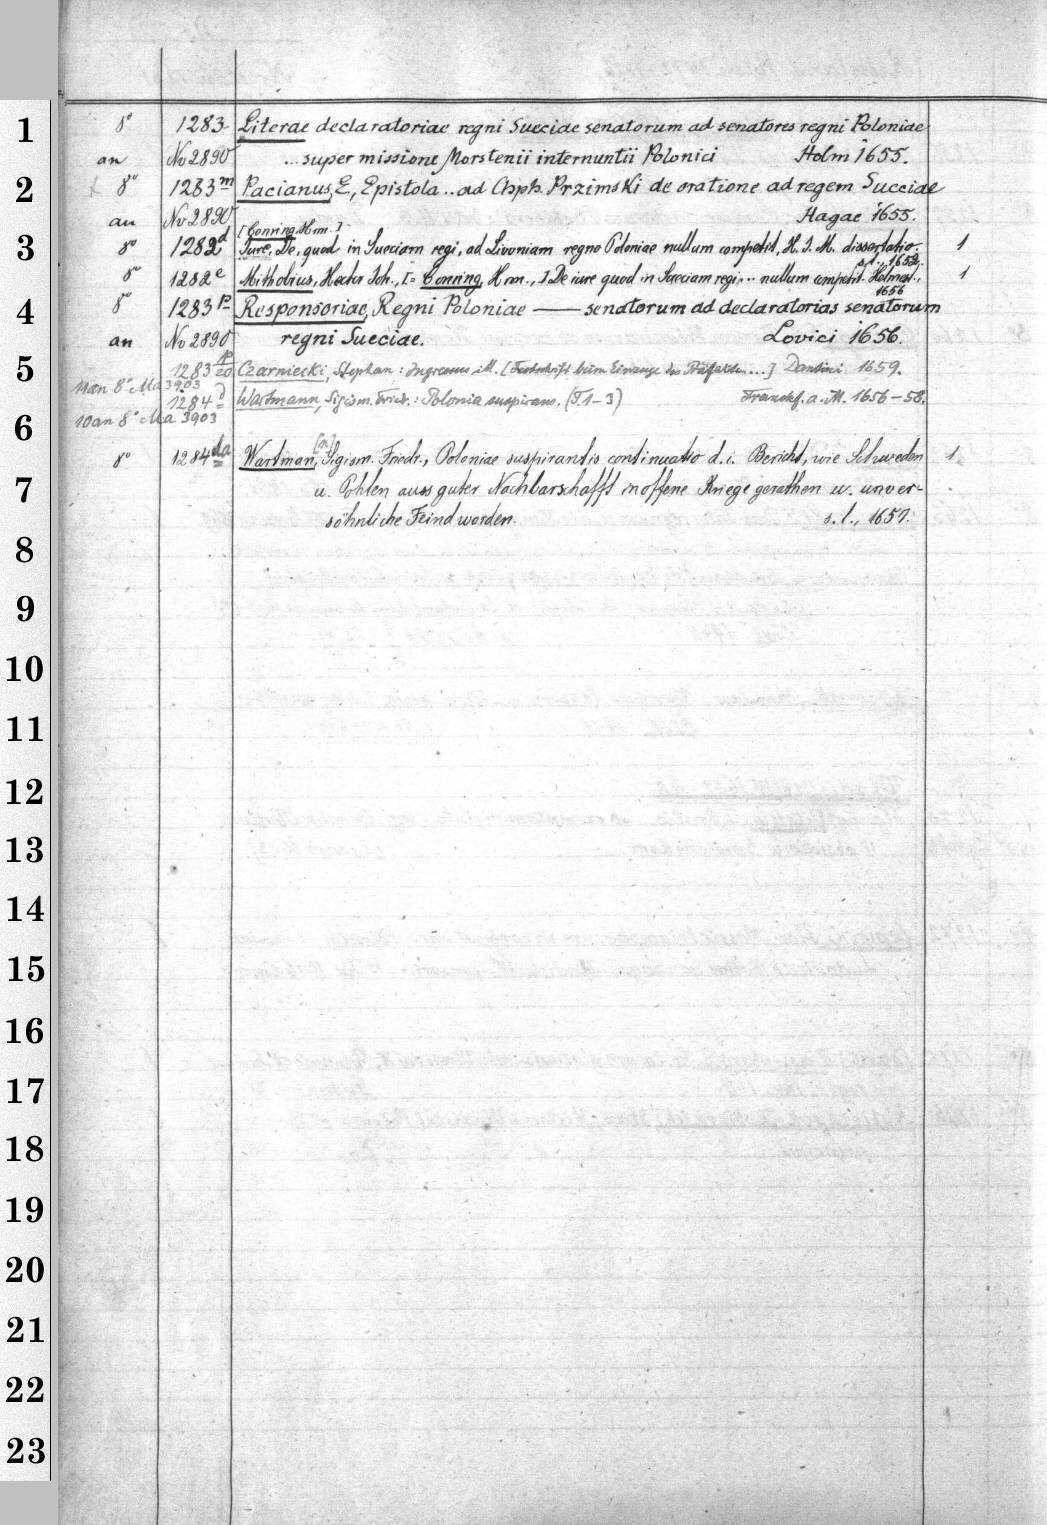 1
8° 1283 Literae declaratoriae regni Sueciae senatorum ad senatores regni Poloniae
an No 2890 ... super missione Morstenii internuntii Polonici Holm 1655.
2
8° 1283m Pacianus, E, Epistola .. ad Chph. Przimski de oratione ad regem Sueciae
an No 2890 Hagae 1655.
[Conring, Hrm.]
3
8° 1282d Jure, De, quod in Sueciam regi, ad Livoniam regno Poloniae nullum competit, H. I. M. dissertatio. 1
s. l., 1652.
8° 1282e Mithobius, Hector Joh., [= Conring, Hrm.,] De iure quod in Sueciam regi ... nullum competit. Helmest., 1
1656
4
8° 1283p Responsoriae, Regni Poloniae —— senatorum ad declaratorias senatorum
an No 2890 regni Sueciae. Lovici 1656.
5
1283 p/20 Czarniecki, Stephan: Ingressus i.M. [Festschrift beim Einzuge des Präfekten ...] Dantisci 1659.
11 an 8° Ma 3903
1284 d Wartmann, Sigism. Fried.: Polonia suspirans. (T. 1-3) Franckf. a. M. 1656-58.
6
10 an 8° Ma 3903
8° 1284da Wartman[n], Sigism. Friedr., Poloniae suspirantis continuatio d. i. Bericht, wie Schweden 1
7
u. Pohlen auss guter Nachbarschafft in offene Kriege gerathen u. unver-
söhnliche Feind worden. s. l., 1657.
8
9
10
11
12
13
14
15
16
17
18
19
20
21
22
23